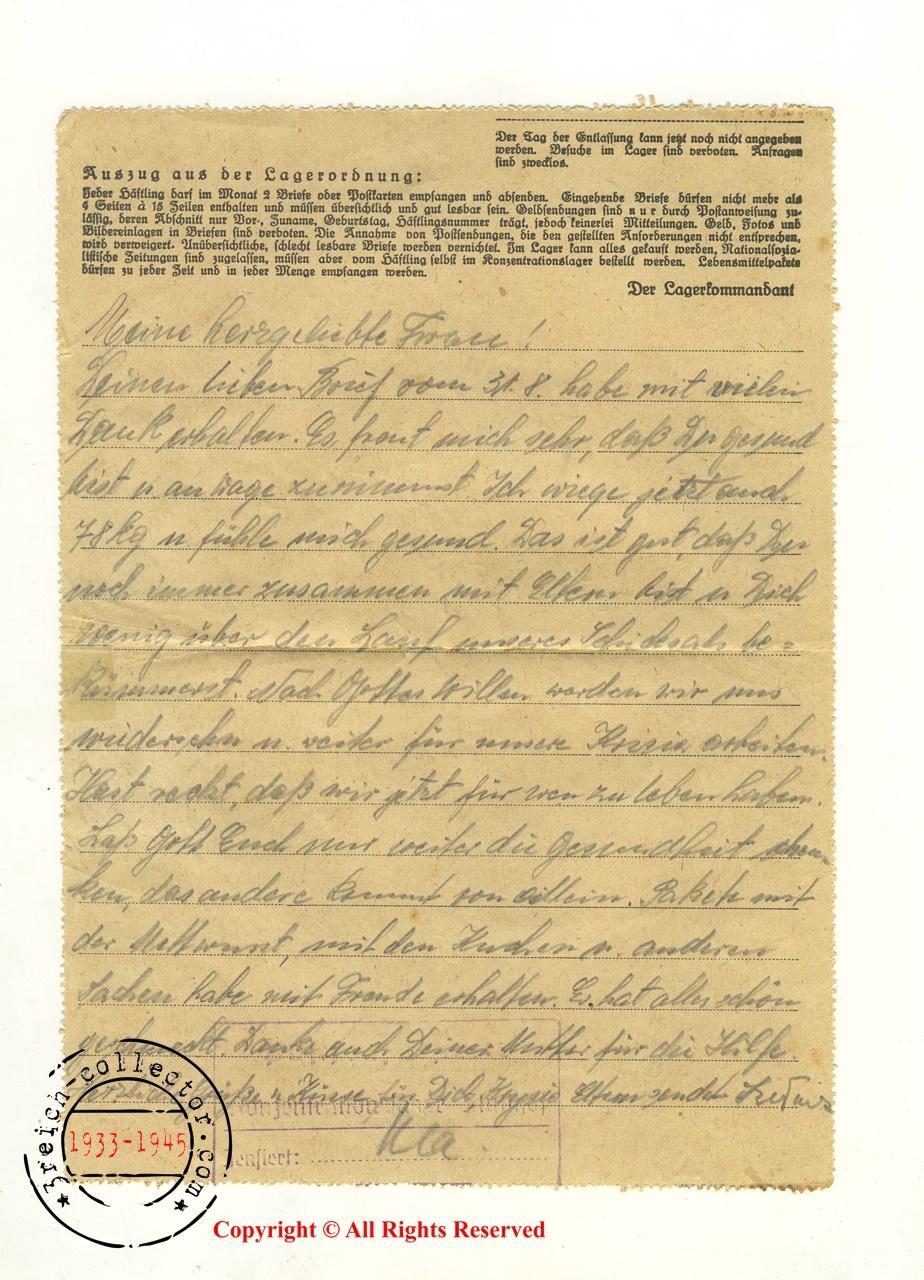 Der Tag der Entlassung kann jetzt noch nicht angegeben
werden. Besuche im Lager sind verboten. Anfragen
sind zwecklos.
Auszug aus der Lagerordnung:
Jeder Häftling darf im Monat 2 Briefe oder Postkarten empfangen und absenden. Eingehende Briefe dürfen nicht mehr als
4 Seiten à 15 Zeilen enthalten und müssen übersichtlich und gut lesbar sein. Geldsendungen sind nur durch Postanweisung zu-
lässig, deren Abschnitt nur Vor-, Zuname, Geburtstag, Häftlingsnummer trägt, jedoch keinerlei Mitteilungen. Geld, Fotos und
Bildereinlagen in Briefen sind verboten. Die Annahme von Postsendungen, die den gestellten Anforderungen nicht entsprechen,
wird verweigert. Unübersichtliche, schlecht lesbare Briefe werden vernichtet. Im Lager kann alles gekauft werden, Nationalsozia-
listische Zeitungen sind zugelassen, müssen aber vom Häftling selbst im Konzentrationslager bestellt werden. Lebensmittelpakete
dürfen zu jeder Zeit und in jeder Menge empfangen werden.
Der Lagerkommandant
Meine herzgeliebte Frau!
Deinen lieben Brief vom 31.8. habe mit vielen
Dank erhalten. Es freut mich sehr, daß Du gesund
bist u an wage zunimmst Ich wiege jetzt auch
78 kg u fühle mich gesund. Das ist gut, daß Du
noch immer zusammen mit Eltern bist u Dich
wenig über den Lauf unseres Schicksals be=
kümmerst. Nach Gottes Willen werden wir uns
wiedersehn u. weiter für unsere Krisia arbeiten.
Hast recht, daß wir jetzt für wen zu leben haben.
Laß Gott Euch nur weiter die Gesundheit schen-
ken, das andere kommt von allein. Pakete mit
der Mettwurst, mit den Kuchen u. anderen
Sachen habe mit Freude erhalten. Es hat alles schön
geschmeckt. Danke auch Deiner Mutter für die Hilfe.
u Küsse für Dich Krysia Eltern sendet
zensiert:
3reich-collector.com
1933-1945
Copyright © All Rights Reserved